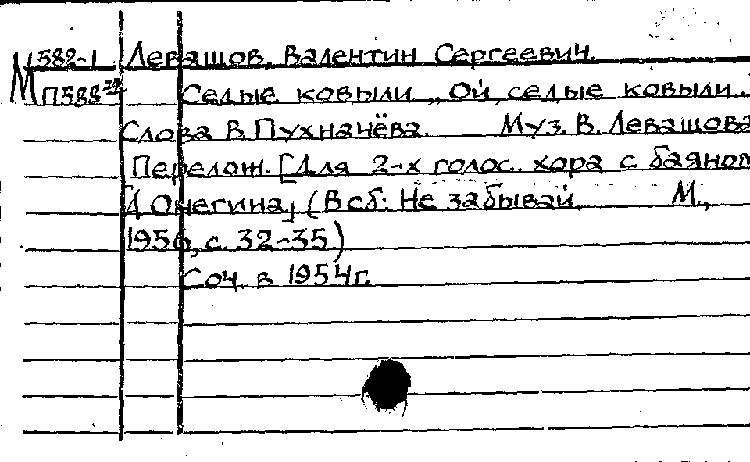 М 1588-1 Левашов, Валентин Сергеевич.
П588 Седые ковыли „Ой, седые ковыли..
Слова В. Пухначёва. Муз. В. Левашова
Перелож. [для 2-х голос. хора с баяном
А Онегина] (В сб: Не забывай. М.,
1956, с. 32-35)
Соч. в 1954г.